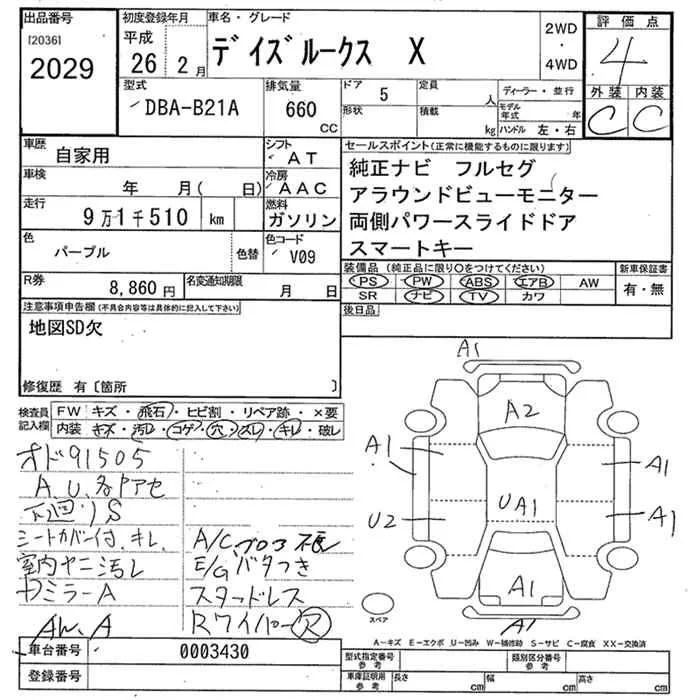 出品番号
[2036]
2029
初度登録年月
平成
26 2月
車名・グレード
デイズルークス X
2WD
・
4WD
評価点
4
外装 内装
C C
型式
DBA-B21A
排気量
660
CC
ドア 5
形状
定員 人
積載 kg
ディーラー・並行
モデル年式 年
ハンドル 左・右
車歴
自家用
シフト
AT
車検
年 月( 日)
冷房
AAC
走行
9万1千510 km
燃料
ガソリン
色
パープル
色替
色コード
V09
R券
8,860円
名変通知期限
月 日
セールスポイント(正常に機能するものに限ります)
純正ナビ フルセグ
アラウンドビューモニター
両側パワースライドドア
スマートキー
装備品 (純正品に限り○をつけてください)
PS PW ABS エアB AW
SR ナビ TV カワ
新車保証書
有・無
後日品
注意事項申告欄(不具合内容等は具体的に記入して下さい)
地図SD欠
修復歴 有〔箇所 〕
検査員
記入欄
FW キズ・飛石・ヒビ割・リペア跡・×要
内装 キズ・汚レ・コゲ・穴・スレ・キレ・破レ
オド91505
A、U、各アセ
下廻りS
シートカバー付、キレ、
室内ヤニ汚レ
ミラーA
A/Cブロア不良
E/Gバタつき
スタッドレス
Rワイパー穴
AW、A
A1
A2
A1
A1
U2
UA1
A1
A1
A1
スペア
A-キズ E-エクボ U-凹み W-補修跡 S-サビ C-腐食 XX-交換済
車台番号
0003430
登録番号
型式指定番号
参考
類別区分番号
参考
車庫証明用
参考
長さ cm
幅 cm
高さ cm